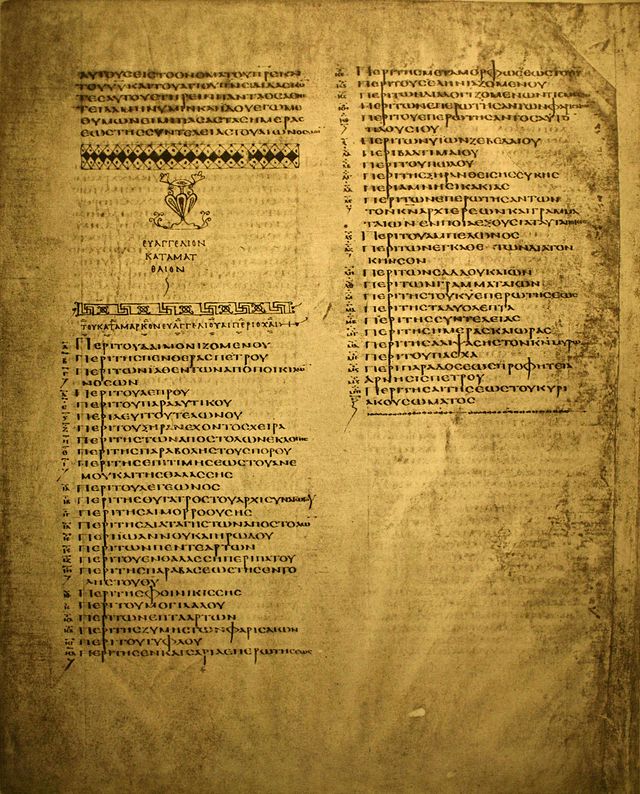 ΑΥΤΟΥΣΕΙΣΤΟΟΝΟΜΑΤΟΥΠΡΣΚΑΙ
ΤΟΥΥΥΚΑΙΤΟΥΑΓΙΟΥΠΝΣΔΙΔΑΣΚΟ
ΤΕΣΑΥΤΟΥΣΤΗΡΕΙΝΠΑΝΤΑΟΣΑΕ
ΝΕΤΕΙΛΑΜΗΝΥΜΙΝΚΑΙΙΔΟΥΕΓΩΜΕ
ΘΥΜΩΝΕΙΜΙΠΑΣΑΣΤΑΣΗΜΕΡΑΣ
ΕΩΣΤΗΣΣΥΝΤΕΛΕΙΑΣΤΟΥΑΙΩΝΟΣ
ΕΥΑΓΓΕΛΙΟΝ
ΚΑΤΑΜΑΤ
ΘΑΙΟΝ
ΤΟΥΚΑΤΑΜΑΡΚΟΝΕΥΑΓΓΕΛΙΟΥΑΙΠΕΡΙΟΧΑΙ
ΠΕΡΙΤΟΥΔΑΙΜΟΝΙΖΟΜΕΝΟΥ
ΠΕΡΙΤΗΣΠΕΝΘΕΡΑΣΠΕΤΡΟΥ
ΠΕΡΙΤΩΝΙΑΘΕΝΤΩΝΑΠΟΠΟΙΚΙΛΩ
ΝΟΣΩΝ
ΠΕΡΙΤΟΥΛΕΠΡΟΥ
ΠΕΡΙΤΟΥΠΑΡΑΛΥΤΙΚΟΥ
ΠΕΡΙΛΕΥΙΤΟΥΤΕΛΩΝΟΥ
ΠΕΡΙΤΟΥΞΗΡΑΝΕΧΟΝΤΟΣΧΕΙΡΑ
ΠΕΡΙΤΗΣΤΩΝΑΠΟΣΤΟΛΩΝΕΚΛΟΓΗΣ
ΠΕΡΙΤΗΣΠΑΡΑΒΟΛΗΣΤΟΥΣΠΟΡΟΥ
ΠΕΡΙΤΗΣΕΠΙΤΙΜΗΣΕΩΣΤΟΥΑΝΕ
ΜΟΥΚΑΙΤΗΣΘΑΛΑΣΣΗΣ
ΠΕΡΙΤΟΥΛΕΓΕΩΝΟΣ
ΠΕΡΙΤΗΣΘΥΓΑΤΡΟΣΤΟΥΑΡΧΙΣΥΝΑΓΩΓΟΥ
ΠΕΡΙΤΗΣΑΙΜΟΡΡΟΟΥΣΗΣ
ΠΕΡΙΤΗΣΔΙΑΤΑΓΗΣΤΩΝΑΠΟΣΤΟΛΩ
ΠΕΡΙΙΩΑΝΝΟΥΚΑΙΗΡΩΔΟΥ
ΠΕΡΙΤΩΝΠΕΝΤΕΑΡΤΩΝ
ΠΕΡΙΤΟΥΕΝΘΑΛΑΣΣΗΠΕΡΙΠΑΤΟΥ
ΠΕΡΙΤΗΣΠΑΡΑΒΑΣΕΩΣΤΗΣΕΝΤΟ
ΛΗΣΤΟΥΘΥ
ΠΕΡΙΤΗΣΦΟΙΝΙΚΙΣΣΗΣ
ΠΕΡΙΤΟΥΜΟΓΙΛΑΛΟΥ
ΠΕΡΙΤΩΝΕΠΤΑΑΡΤΩΝ
ΠΕΡΙΤΗΣΖΥΜΗΣΤΩΝΦΑΡΙΣΑΙΩΝ
ΠΕΡΙΤΟΥΤΥΦΛΟΥ
ΠΕΡΙΤΗΣΕΝΚΑΙΣΑΡΙΑΕΠΕΡΩΤΗΣΕΩΣ
ΠΕΡΙΤΗΣΜΕΤΑΜΟΡΦΩΣΕΩΣΤΟΥ
ΠΕΡΙΤΟΥΣΕΛΗΝΙΑΖΟΜΕΝΟΥ
ΠΕΡΙΤΩΝΔΙΑΛΟΓΙΖΟΜΕΝΩΝ
ΠΕΡΙΤΩΝΕΠΕΡΩΤΗΣΑΝΤΩΝΦΑΡΙΣΑΙ
ΠΕΡΙΤΟΥΕΠΕΡΩΤΗΣΑΝΤΟΣΑΥΤΟ
ΠΛΟΥΣΙΟΥ
ΠΕΡΙΤΩΝΥΙΩΝΖΕΒΕΔΑΙΟΥ
ΠΕΡΙΒΑΡΤΙΜΑΙΟΥ
ΠΕΡΙΤΟΥΠΩΛΟΥ
ΠΕΡΙΤΗΣΞΗΡΑΝΘΕΙΣΗΣΣΥΚΗΣ
ΠΕΡΙΑΜΝΗΣΙΚΑΚΙΑΣ
ΠΕΡΙΤΩΝΕΠΕΡΩΤΗΣΑΝΤΩΝ
ΤΟΝΚΝΑΡΧΙΕΡΕΩΝΚΑΙΓΡΑΜΜΑ
ΤΑΙΩΝΕΝΠΟΙΑΕΞΟΥΣΙΑΤΑΥΤΑ
ΠΕΡΙΤΟΥΑΜΠΕΛΩΝΟΣ
ΠΕΡΙΤΩΝΕΓΚΑΘΕΤΩΝΔΙΑΤΟΝ
ΚΗΝΣΟΝ
ΠΕΡΙΤΩΝΣΑΔΔΟΥΚΑΙΩΝ
ΠΕΡΙΤΩΝΓΡΑΜΜΑΤΑΙΩΝ
ΠΕΡΙΤΗΣΤΟΥΚΥΕΠΕΡΩΤΗΣΕΩΣ
ΠΕΡΙΤΗΣΤΑΔΥΟΛΕΠΤΑ
ΠΕΡΙΤΗΣΣΥΝΤΕΛΕΙΑΣ
ΠΕΡΙΤΗΣΗΜΕΡΑΣΚΑΙΩΡΑΣ
ΠΕΡΙΤΗΣΑΛΙΨΑΣΗΣΤΟΝΚΝΜΥΡΩ
ΠΕΡΙΤΟΥΠΑΣΧΑ
ΠΕΡΙΠΑΡΑΔΟΣΕΩΣΠΡΟΦΗΤΕΙΑ
ΑΡΝΗΣΙΣΠΕΤΡΟΥ
ΠΕΡΙΤΗΣΑΙΤΗΣΕΩΣΤΟΥΚΥΡΙ
ΑΚΟΥΣΩΜΑΤΟΣ